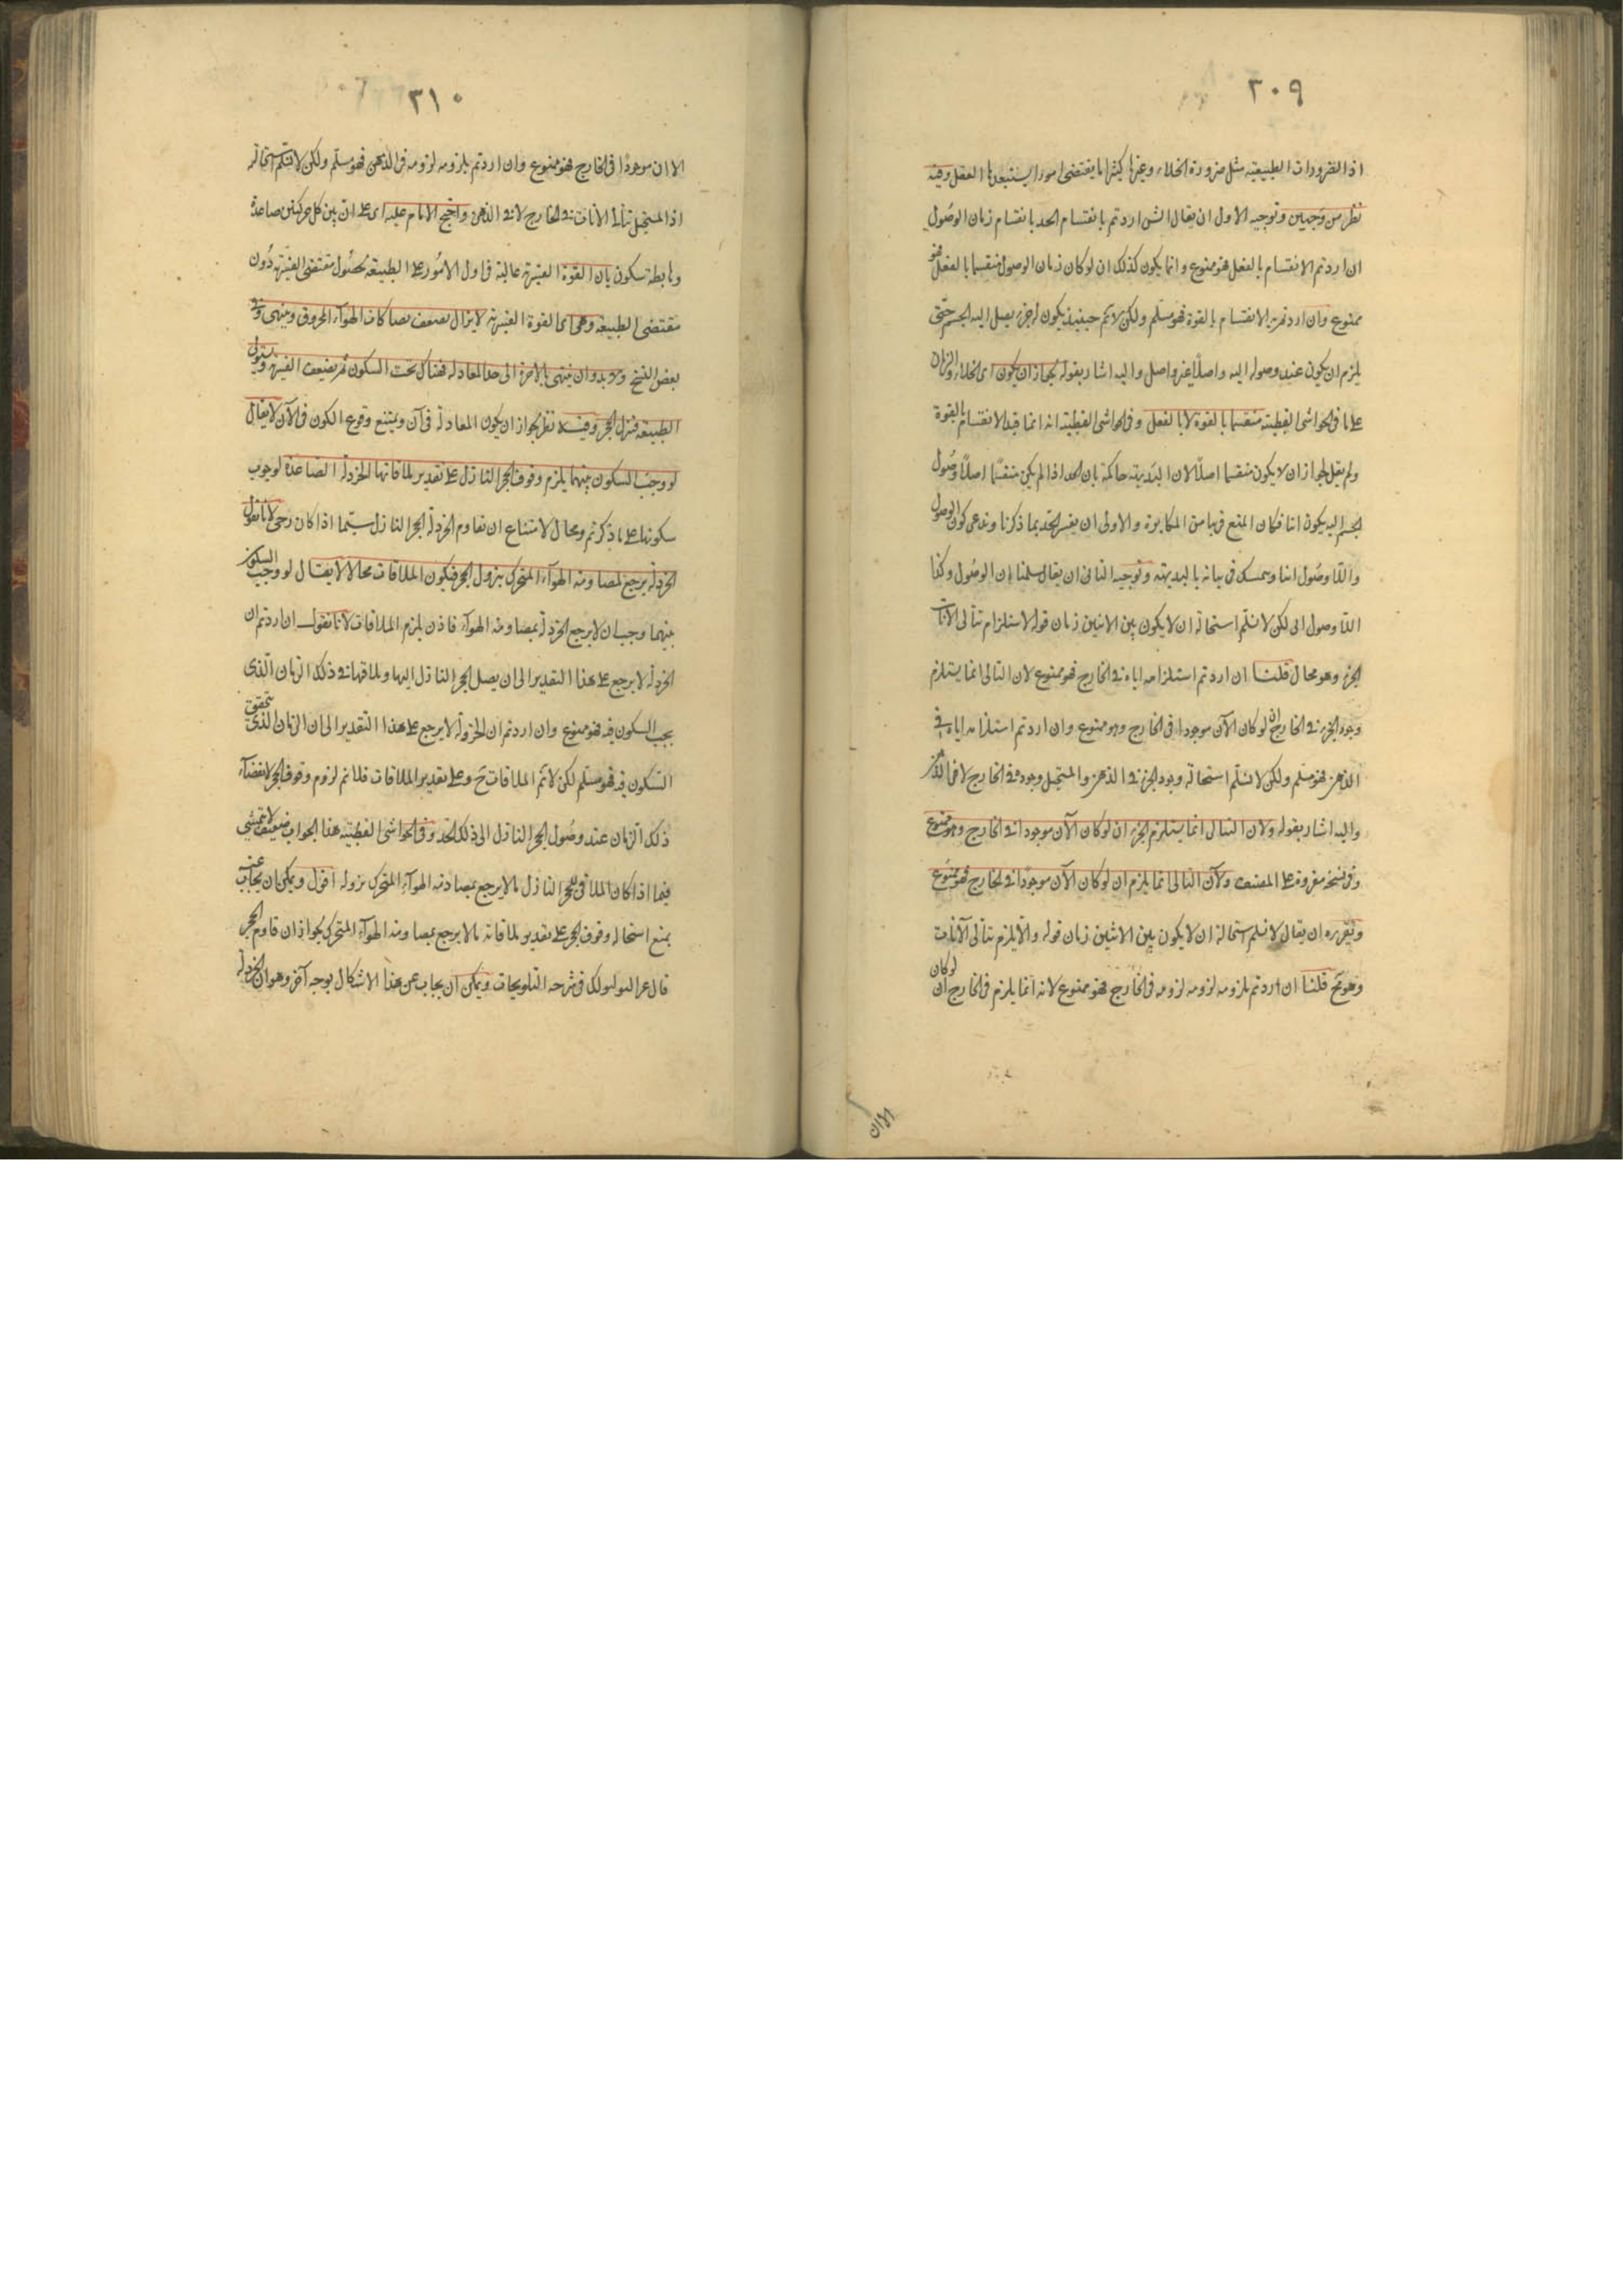 ٣٠٩
اذ الضرورات الطبيعية مثل ضرورة الخلاء وغيرها كثيرا ما يقتضى امورا يستبعدها العقل وفيه
نظر من وجهين وتوجيه الاول ان يقال الشى اردتم بانقسام الحد بانقسام زمان الوصول
ان اردتم الانقسام بالفعل فهو ممنوع وانما يكون كذلك ان لو كان زمان الوصول منقسما بالفعل فهو
ممنوع وان اردتم به الانقسام بالقوة فهو مسلم ولكن لا تم حينئذ يكون له جزء يصل اليه الجسم حتى
يلزم ان يكون عند وصوله اليه واصلا غير واصل واليه اشار بقوله لجواز ان يكون اى الخلاء والزمان
على ما فى الحواشى القطبية منقسما بالقوة لا بالفعل وفى الحواشى القطبية انه انما قيد الانقسام بالقوة
ولم يقل لجواز ان لا يكون منقسما اصلا لان البديهة حاكمة بان الحد اذا لم يكن منقسما اصلا وصول
الجسم اليه يكون انيا فكان المنع فيها من المكابرة والاولى ان يفسر الحد بما ذكرنا وندعى كون الوصول
واللا وصول انيا ويتمسك فى بيانه بالبديهة وتوجيه الثانى ان يقال سلمنا ان الوصول وكذا
اللا وصول انى لكن لا نسلم استحالة ان لا يكون بين الاثنين زمان قوله لاستلزام تتالى الانات
الجزء وهو محال قلنا ان اردتم استلزامه اياه فى الخارج فهو ممنوع لان التتالى انما يستلزم
وجود الجزء فى الخارج ان لو كان الآن موجودا فى الخارج وهو ممنوع وان اردتم استلزامه اياه فى
الذهن فهو مسلم ولكن لا نسلم استحالة وجود الجزء فى الذهن والمستحيل وجوده فى الخارج لا فى الذهن
واليه اشار بقوله ولان التتالى انما يستلزم الجزء ان لو كان الآن موجودا فى الخارج وهو ممنوع
وفى نسخة مقروة على المصنف ولان التتالى انما يلزم ان لو كان الآن موجودا فى الخارج فهو ممنوع
وتقريره ان يقال لا نسلم استحالة ان لا يكون بين الاثنين زمان قوله والا يلزم تتالى الآنات
وهو مح قلنا ان اردتم بلزومه لزومه فى الخارج فهو ممنوع لانه انما يلزم فى الخارج ان لو كان
الان
٣١٠
الان موجودا فى الخارج فهو ممنوع وان اردتم بلزومه لزومه فى الذهن فهو مسلم ولكن لا نسلم استحالة
اذ المستحيل تتالى الانات فى الخارج لا فى الذهن واحتج الامام عليه اى على ان بين كل حركتين صاعدة
وهابطة سكون بان القوة القسرية غالبة فى اول الامور على الطبيعة لحصول مقتضى القسرية دون
مقتضى الطبيعة وهى اى القوة القسرية لا يزال تضعف بمصاكات الهواء المخروق وينتهى وفى
بعض النسخ ولا بد وان ينتهى بالاخرة الى حد المعادلة فهناك تحت السكون ثم يضعف القسرية ويستولى
الطبيعة فتزل الحجر وفيه نظر لجواز ان يكون المعادلة فى آن ويمتنع وقوع الكون فى الآن لا يقال
لو وجب السكون بينهما يلزم وقوف الحجر النازل على تقدير ملاقاتها الخردلة الصاعدة لوجوب
سكونها على ما ذكرتم ومحال لامتناع ان تقاوم الخردلة الحجر النازل سيما اذا كان رحى لانا نقول
الخردلة يرجع لمصادمة الهواء المتحرك بنزول الحجر فيكون الملاقات محالا لا يقال لو وجب السكون
بينهما وجب ان لا يرجع الخردلة بمصادمة الهواء فاذن يلزم الملاقات لانا نقول ان اردتم ان
الخردلة لا يرجع على هذا التقدير الى ان يصل الحجر النازل اليها وملاقيها فى ذلك الزمان الذى
يجب السكون فيه فهو ممنوع وان اردتم ان الخردلة لا يرجع على هذا التقدير الى ان الزمان الذى يتحقق
السكون فيه فهو مسلم لكن لا تم الملاقات ح وعلى تقدير الملاقات فلا تم لزوم وقوف الحجر لانقضاء
ذلك الزمان عند وصول الحجر النازل الى ذلك الحد وفى الحواشى القطبية هذا الجواب ضعيف لا يتمشى
فيما اذا كان الملاقى للحجر النازل مالا يرجع بمصادمة الهواء المتحرك بنزوله اقول ويمكن ان يجاب عنه
بمنع استحالة وقوف الحجر على تقدير ملاقاته مالا يرجع بمصادمة الهواء المتحرك لجواز ان قاوم الحجر
قال فى شرحه التلويحات ويمكن ان يجاب عن هذا الاشكال بوجه آخر وهو ان الخردلة